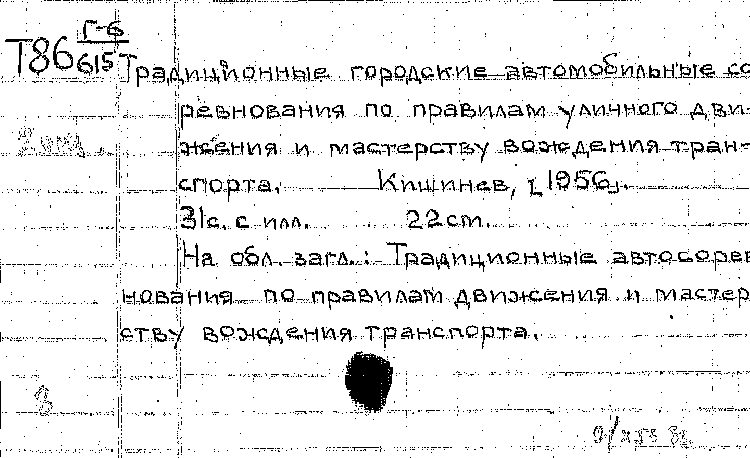 Т86 Г-6
615
Традиционные городские автомобильные со
ревнования по правилам уличного дви-
жения и мастерству вождения тран-
спорта. Кишинев, [1956].
31с. с илл. 22cm.
На обл. загл.: Традиционные автосорев
нования по правилам движения и мастер
ству вождения транспорта.
3